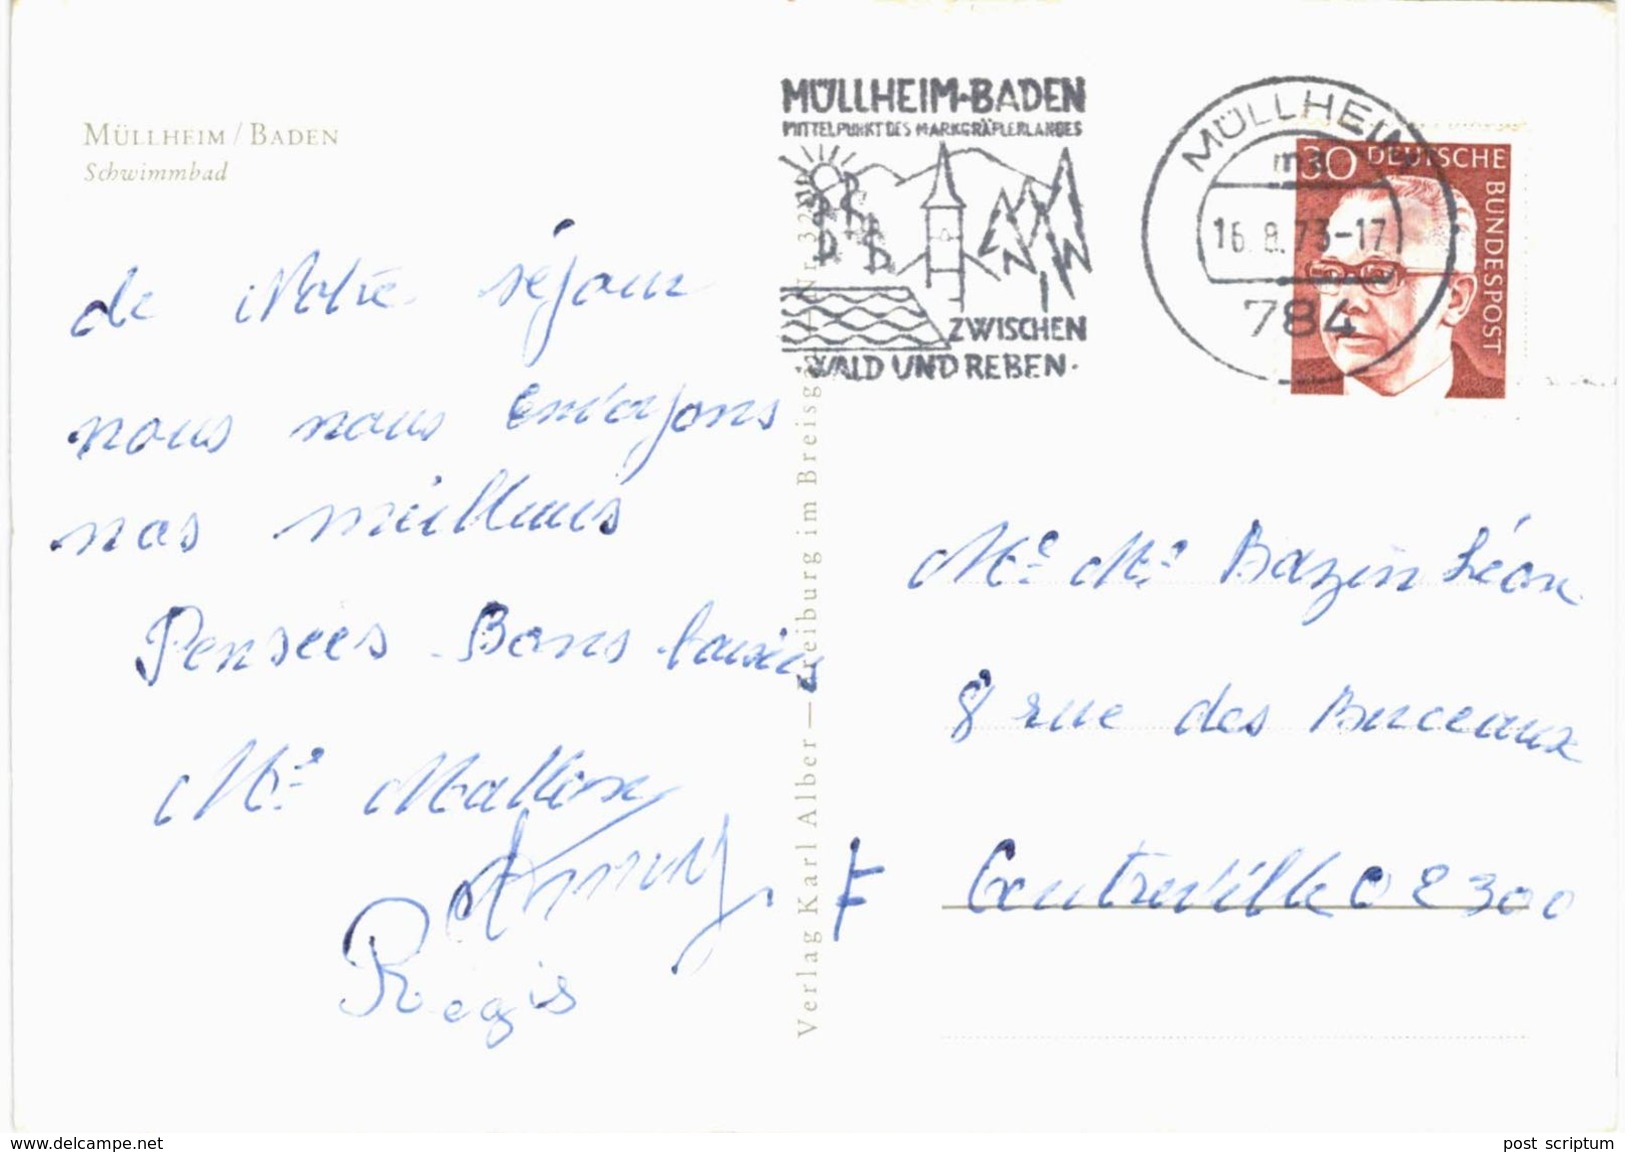 MÜLLHEIM / BADEN
Schwimmbad
de Notre séjour
nous nous envoyons
nos meilleurs
Pensées - Bons baisers
Mᵉ
Régis
MÜLLHEIM-BADEN
MITTELPUNKT DES MARKGRÄFLERLANDES
ZWISCHEN
·WALD UND REBEN·
MÜLLHEIM
ma
16.8.73-17
784
30 DEUTSCHE
BUNDESPOST
Verlag Karl Alber — Freiburg im Breisgau
Nr. 32
Mᵉ Mʳ Bazin Léon
8 rue des
F
02300
www.delcampe.net
post scriptum